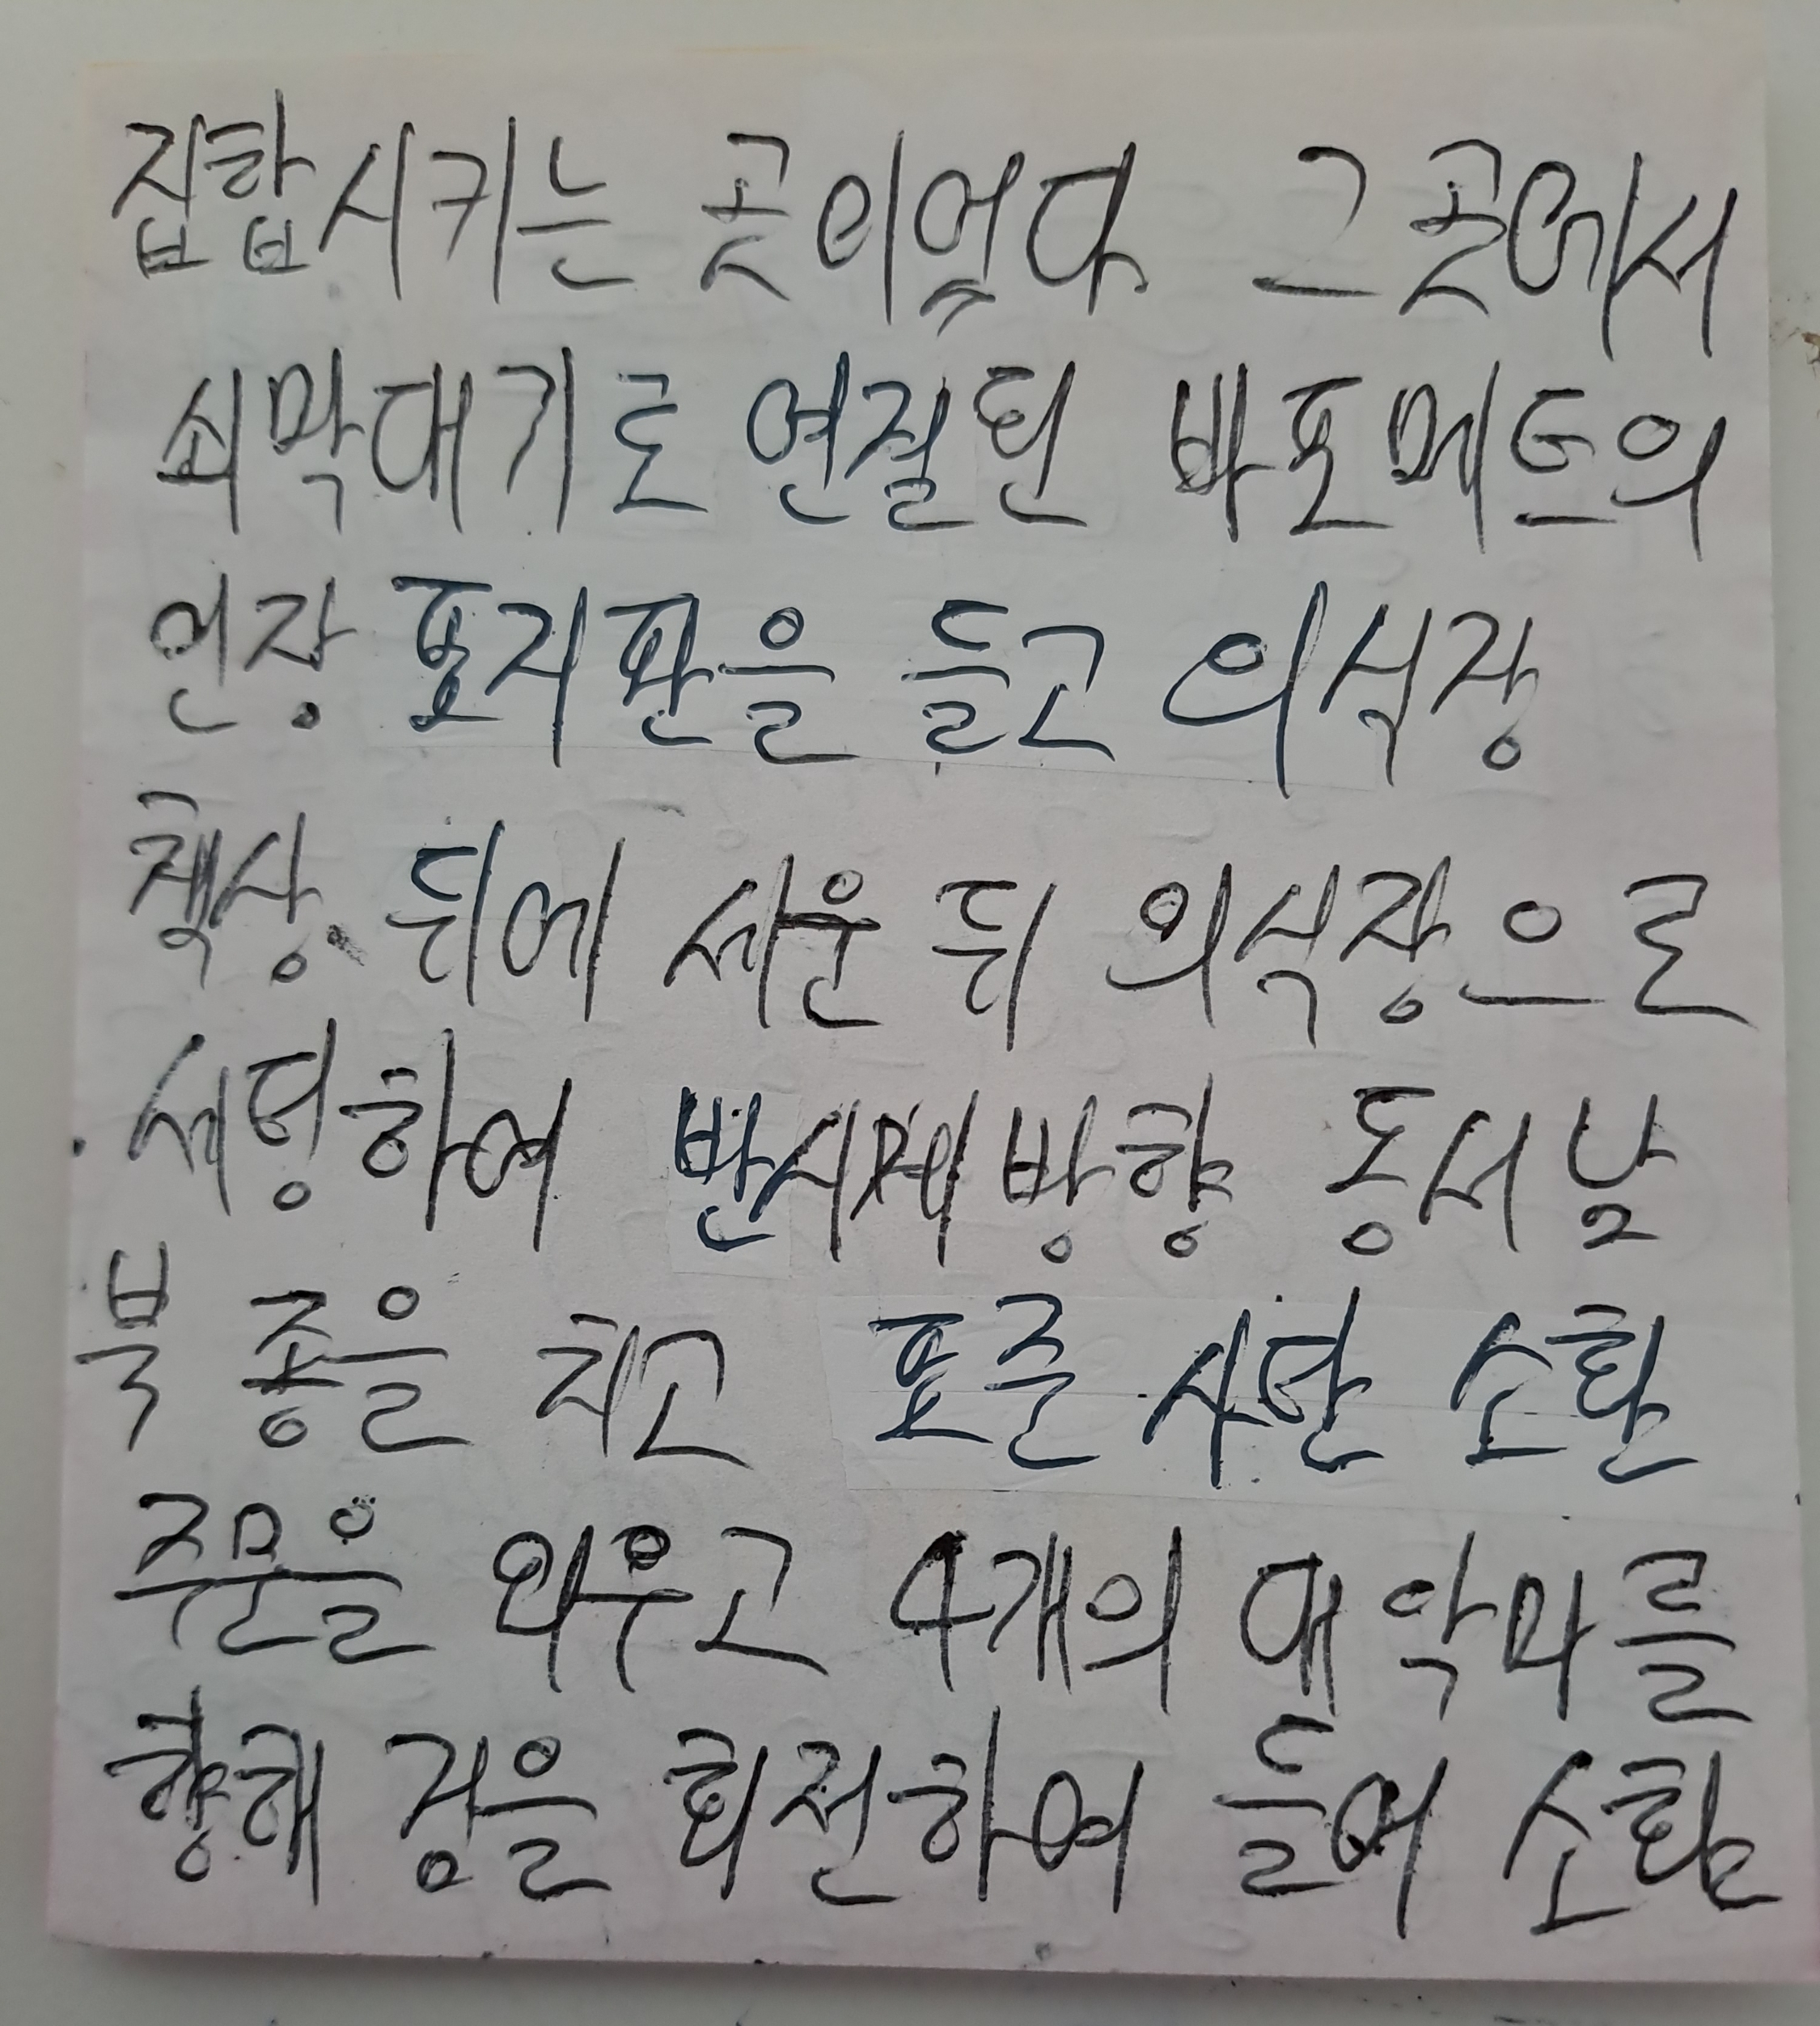 집합시키는 곳이었다. 그곳에서
쇠막대기로 연결된 바포메트의
인장 표지판을 들고 의식장
책상 뒤에 세운 뒤 의식장으로
세팅하여 반시계방향 동서남
북 종을 치고 표준 사탄 소환
주문을 외우고 4개의 대악마를
향해 검을 회전하여 들어 소환